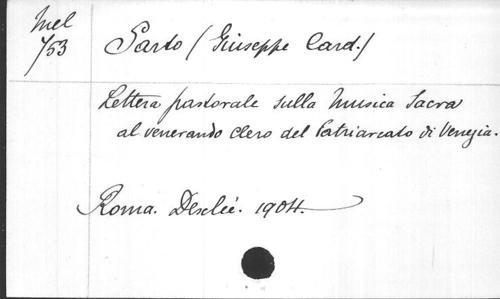 Mel
753
Sarto (Giuseppe Card.)
Lettera pastorale sulla Musica Sacra
al venerando Clero del Patriarcato di Venezia.
Roma. Desclée. 1904.